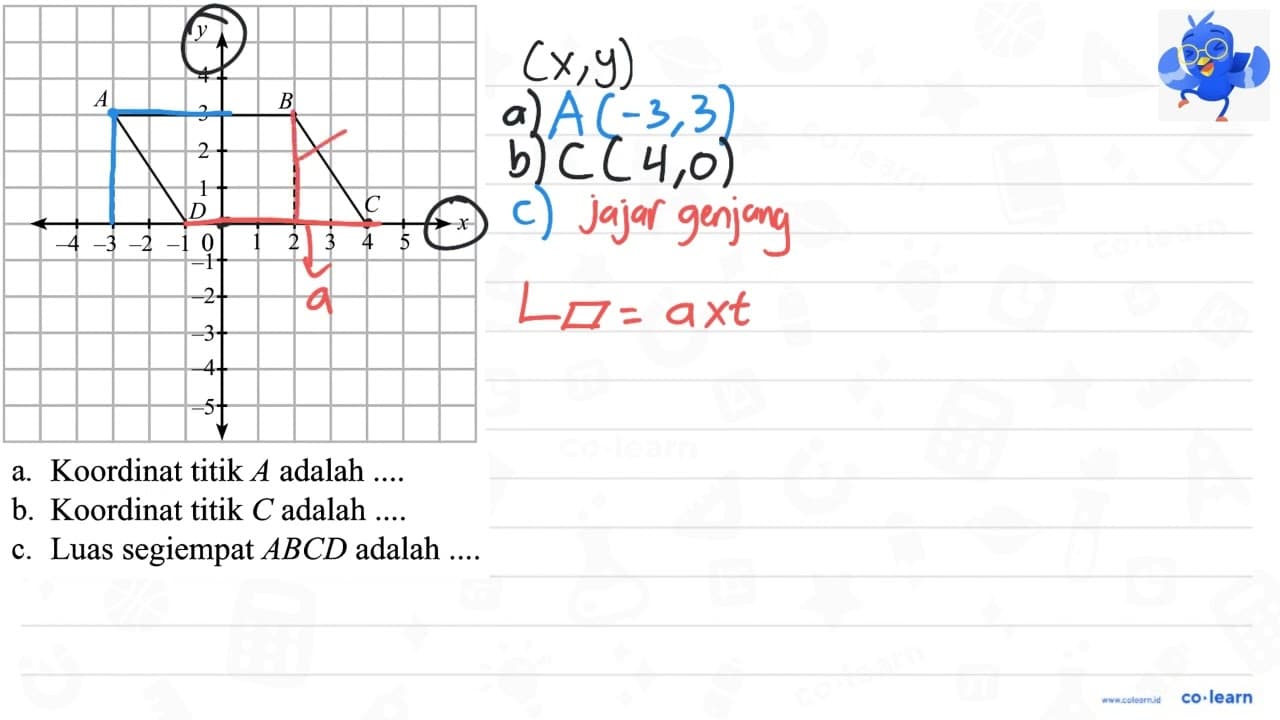 y
4
A
B
3
2
1
D
C
x
–4 –3 –2 –1 0 1 2 3 4 5
–1
–2
a
–3
–4
–5
(x,y)
a) A (-3,3)
b) C (4,0)
c) jajar genjang
L▱ = a x t
a. Koordinat titik A adalah ....
b. Koordinat titik C adalah ....
c. Luas segiempat ABCD adalah ....
www.colearn.id co·learn